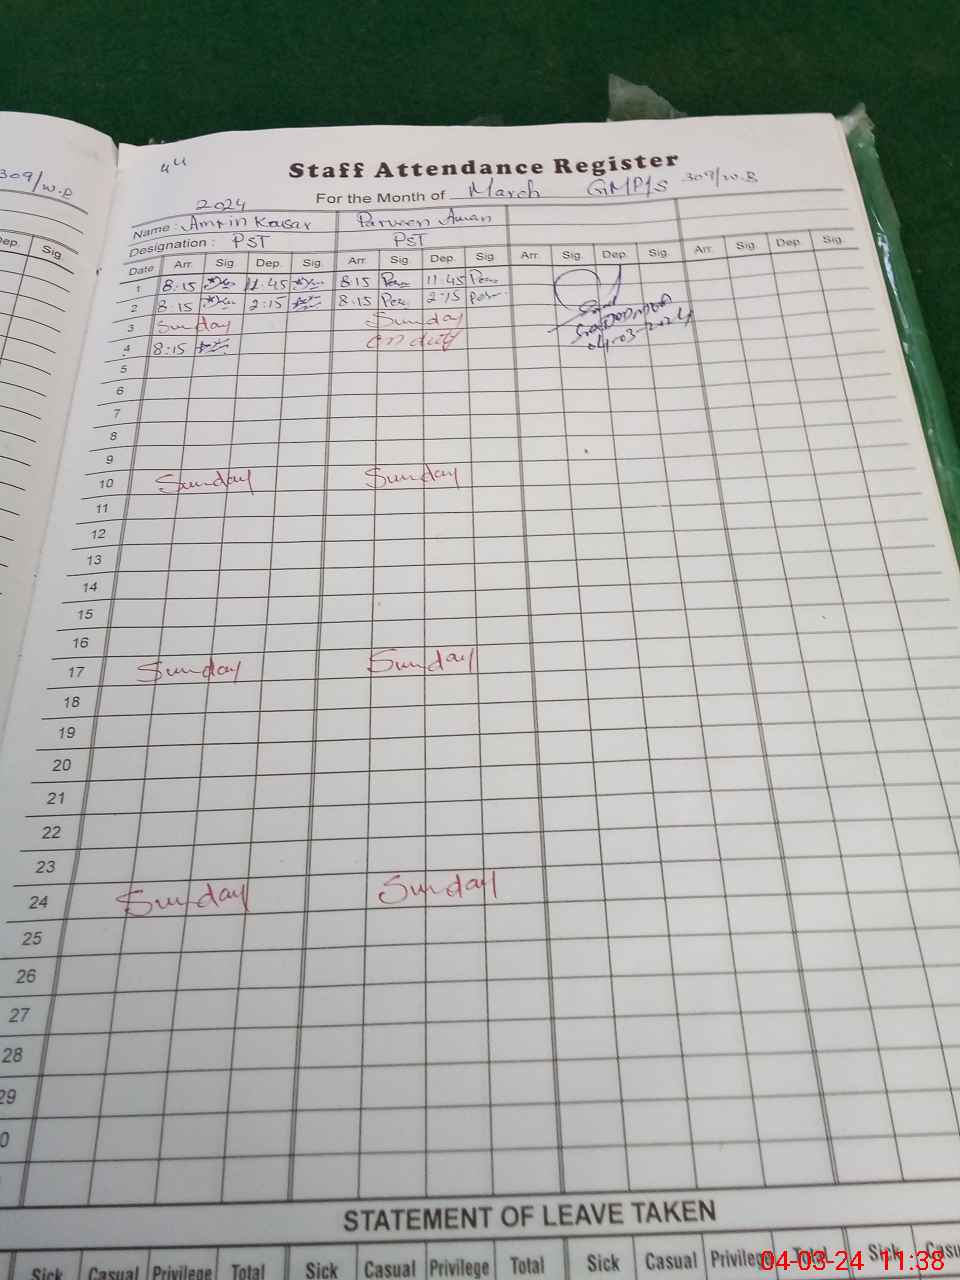 309/W.B
Dep. Sig.
44
Staff Attendance Register
For the Month of March GMP/S 309/W.B
2024
Name: Amrin Kousar Parveen Aman
Designation: PST PST
Date Arr. Sig. Dep. Sig. Arr. Sig. Dep. Sig. Arr. Sig. Dep. Sig. Arr. Sig. Dep. Sig.
1 8:15 11:45 8:15 11:45
2 8:15 2:15 8:15 2:15
3 Sunday Sunday
4 8:15 on duty
04-03-2024
5
6
7
8
9
10 Sunday Sunday
11
12
13
14
15
16
17 Sunday Sunday
18
19
20
21
22
23
24 Sunday Sunday
25
26
27
28
29
0
STATEMENT OF LEAVE TAKEN
Sick Casual Privilege Total Sick Casual Privilege Total Sick Casual Privilege Total Sick Casu
04-03-24 11:38